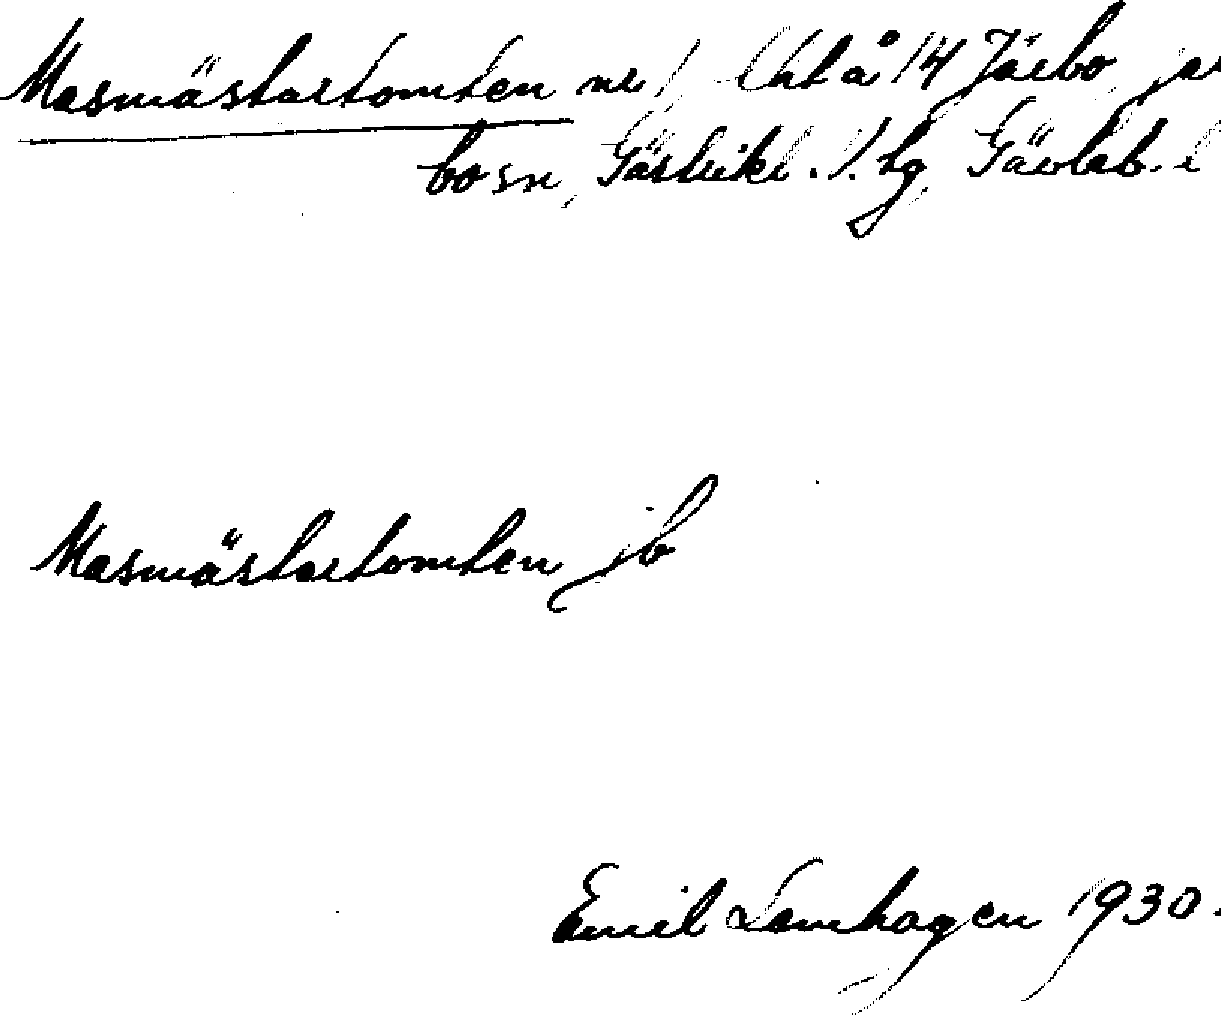 Masmästartomten nr 1, Utå 14 Järbo, jär
bo sn, Gästrikl. V. tg, Gävleb. l
Masmästartomten jb
Emil Lamhagen 1930.